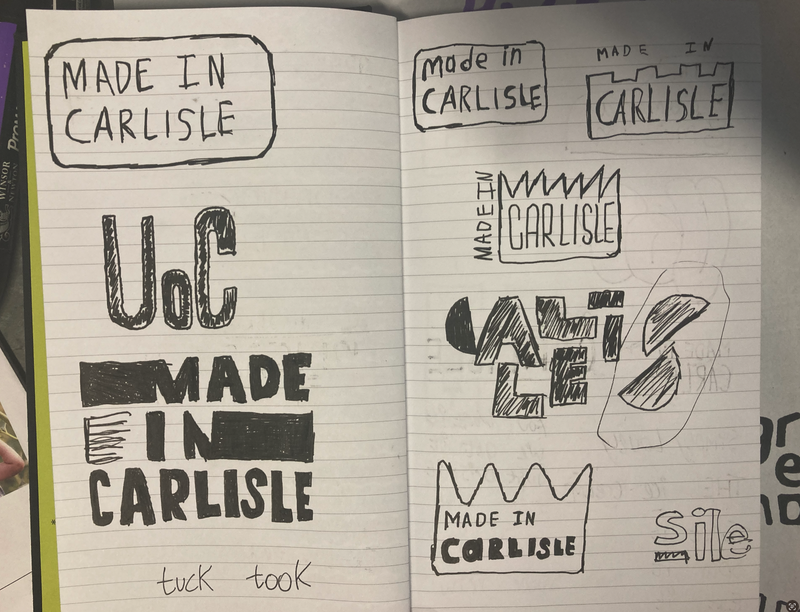 MADE IN
CARLISLE
UoC
MADE
IN
CARLISLE
tuck took
made in
CARLISLE
MADE IN
CARLISLE
MADE IN
CARLISLE
MADE IN
CARLISLE
WINSOR